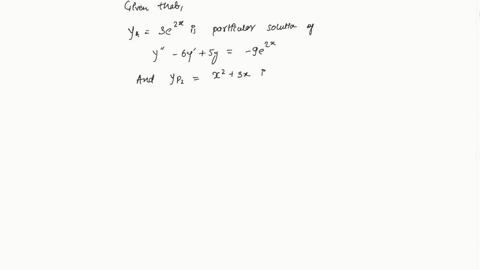 Given that,
y_p₁ = 3e^{2x} is particular solution of
y'' - 6y' + 5y = -9e^{2x}
And y_{P₂} = x² + 3x i